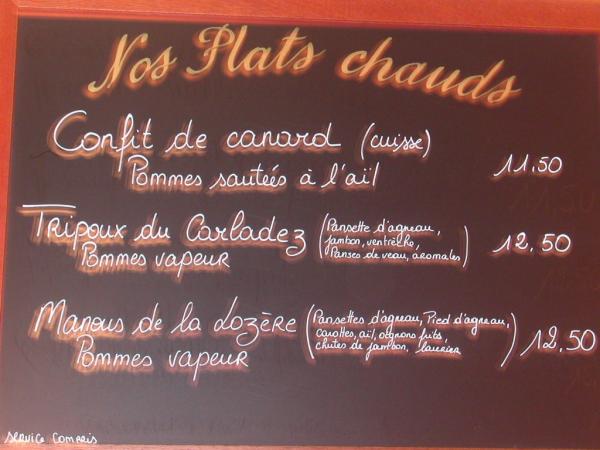 Nos Plats chauds
Confit de canard (cuisse)
Pommes sautées à l'aïl
11.50
Tripoux du Carladez
(Pansette d'agneau,
jambon, ventrèche,
Panses de veau, aromates)
12.50
Pommes vapeur
Manous de la Lozère
(Pansettes d'agneau, Pied d'agneau,
carottes, aïl, oignons frits,
chutes de jambon, laurier)
12.50
Pommes vapeur
Service Compris